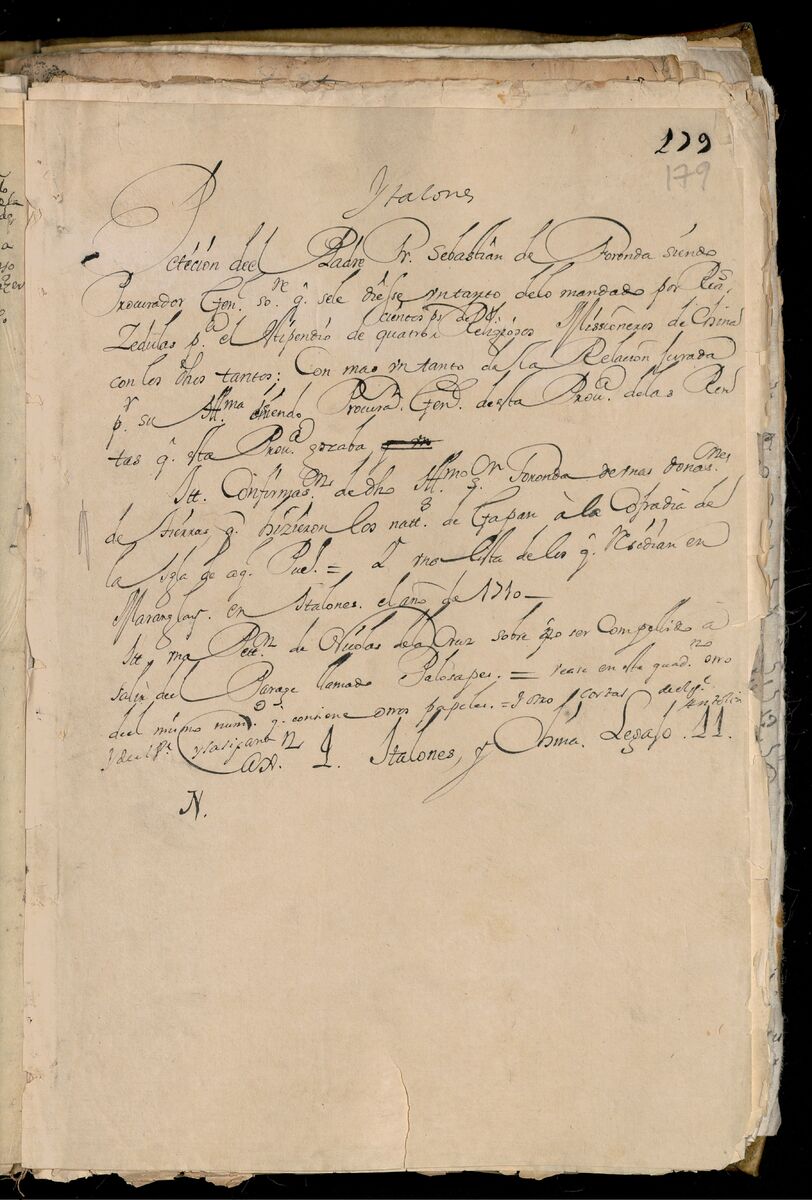 179
179
Ytalones
Peticion del Padre Fr. Sebastian de Foronda siendo
Procurador Gen.l so.re q.e sele diesse vn tanto delo mandado por Rea.s
Zedulas p.a el Stipendio de quatro cientos p.s de Religiosos Missioneros de China
con los dhos tantos: Con mas vn tanto de la Relacion Jurada
p.r su Ill.ma siendo Procura.r Gen.l de esta Prou.a delas Ren
tas q.e esta Prou.a gozaba
Itt. Confirmas.on de dho Ill.mo S.r Foronda de vnas donas.nes
de tierras q.e hizieron los natt.s de Gapan à la Cofradia de
la Igla de aq.l Pue.l = Y vna lista de los q.e Residian en
Maranglay en Italones el año de 1710 —
Itt. vna Pett.n de Nicolas dela Cruz sobre q.e no ser Compelido à
salir del Parage llamado Palosapes. = vease en este quad.no otro
del mismo num.o q.e contiene otros papeles. = Y otro cartas del P.e Antolin
y de el P.e
Cax.n 1. Italones, y China. Legajo. 11.
N.